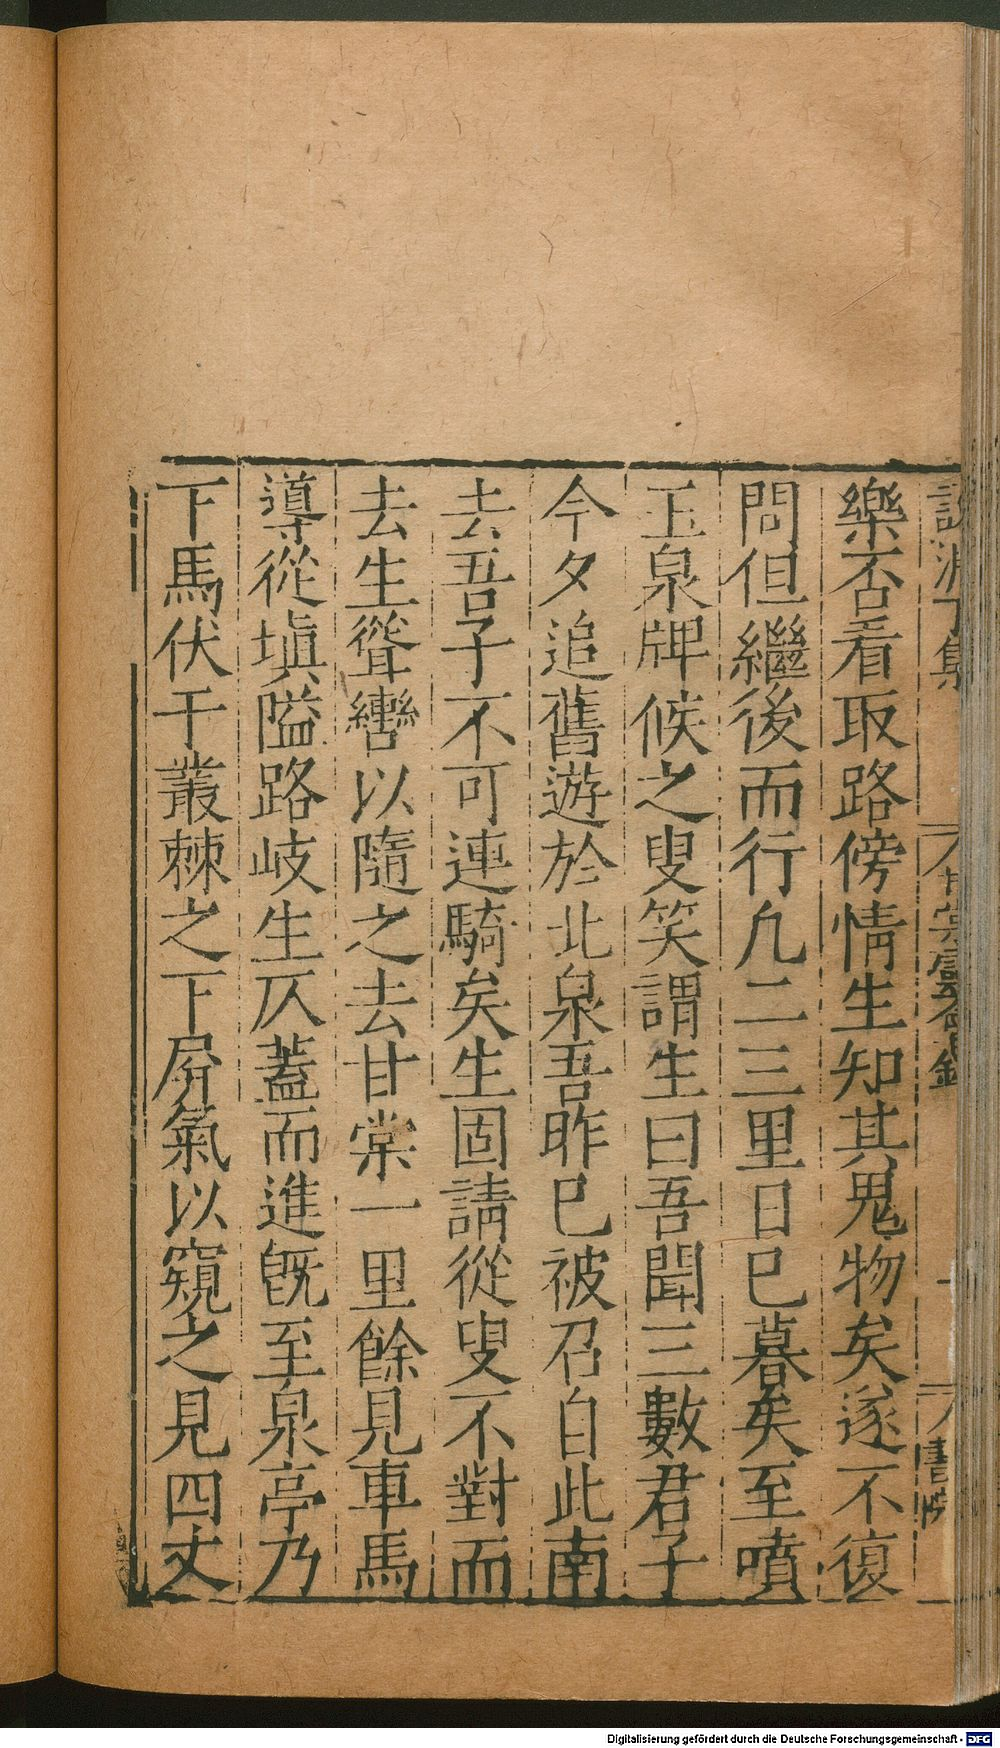 樂否看取路傍情生知其鬼物矣遂不復
問但繼後而行凡二三里日已暮矣至噴
玉泉牌候之叟笑謂生曰吾聞三數君子
今夕追舊遊於北泉吾昨已被召自此南
去吾子不可連騎矣生固請從叟不對而
去生聳轡以隨之去甘棠一里餘見車馬
導從塡隘路岐生仄蓋而進旣至泉亭乃
下馬伏于叢棘之下屏氣以窺之見四丈
Digitalisierung gefördert durch die Deutsche Forschungsgemeinschaft - DFG